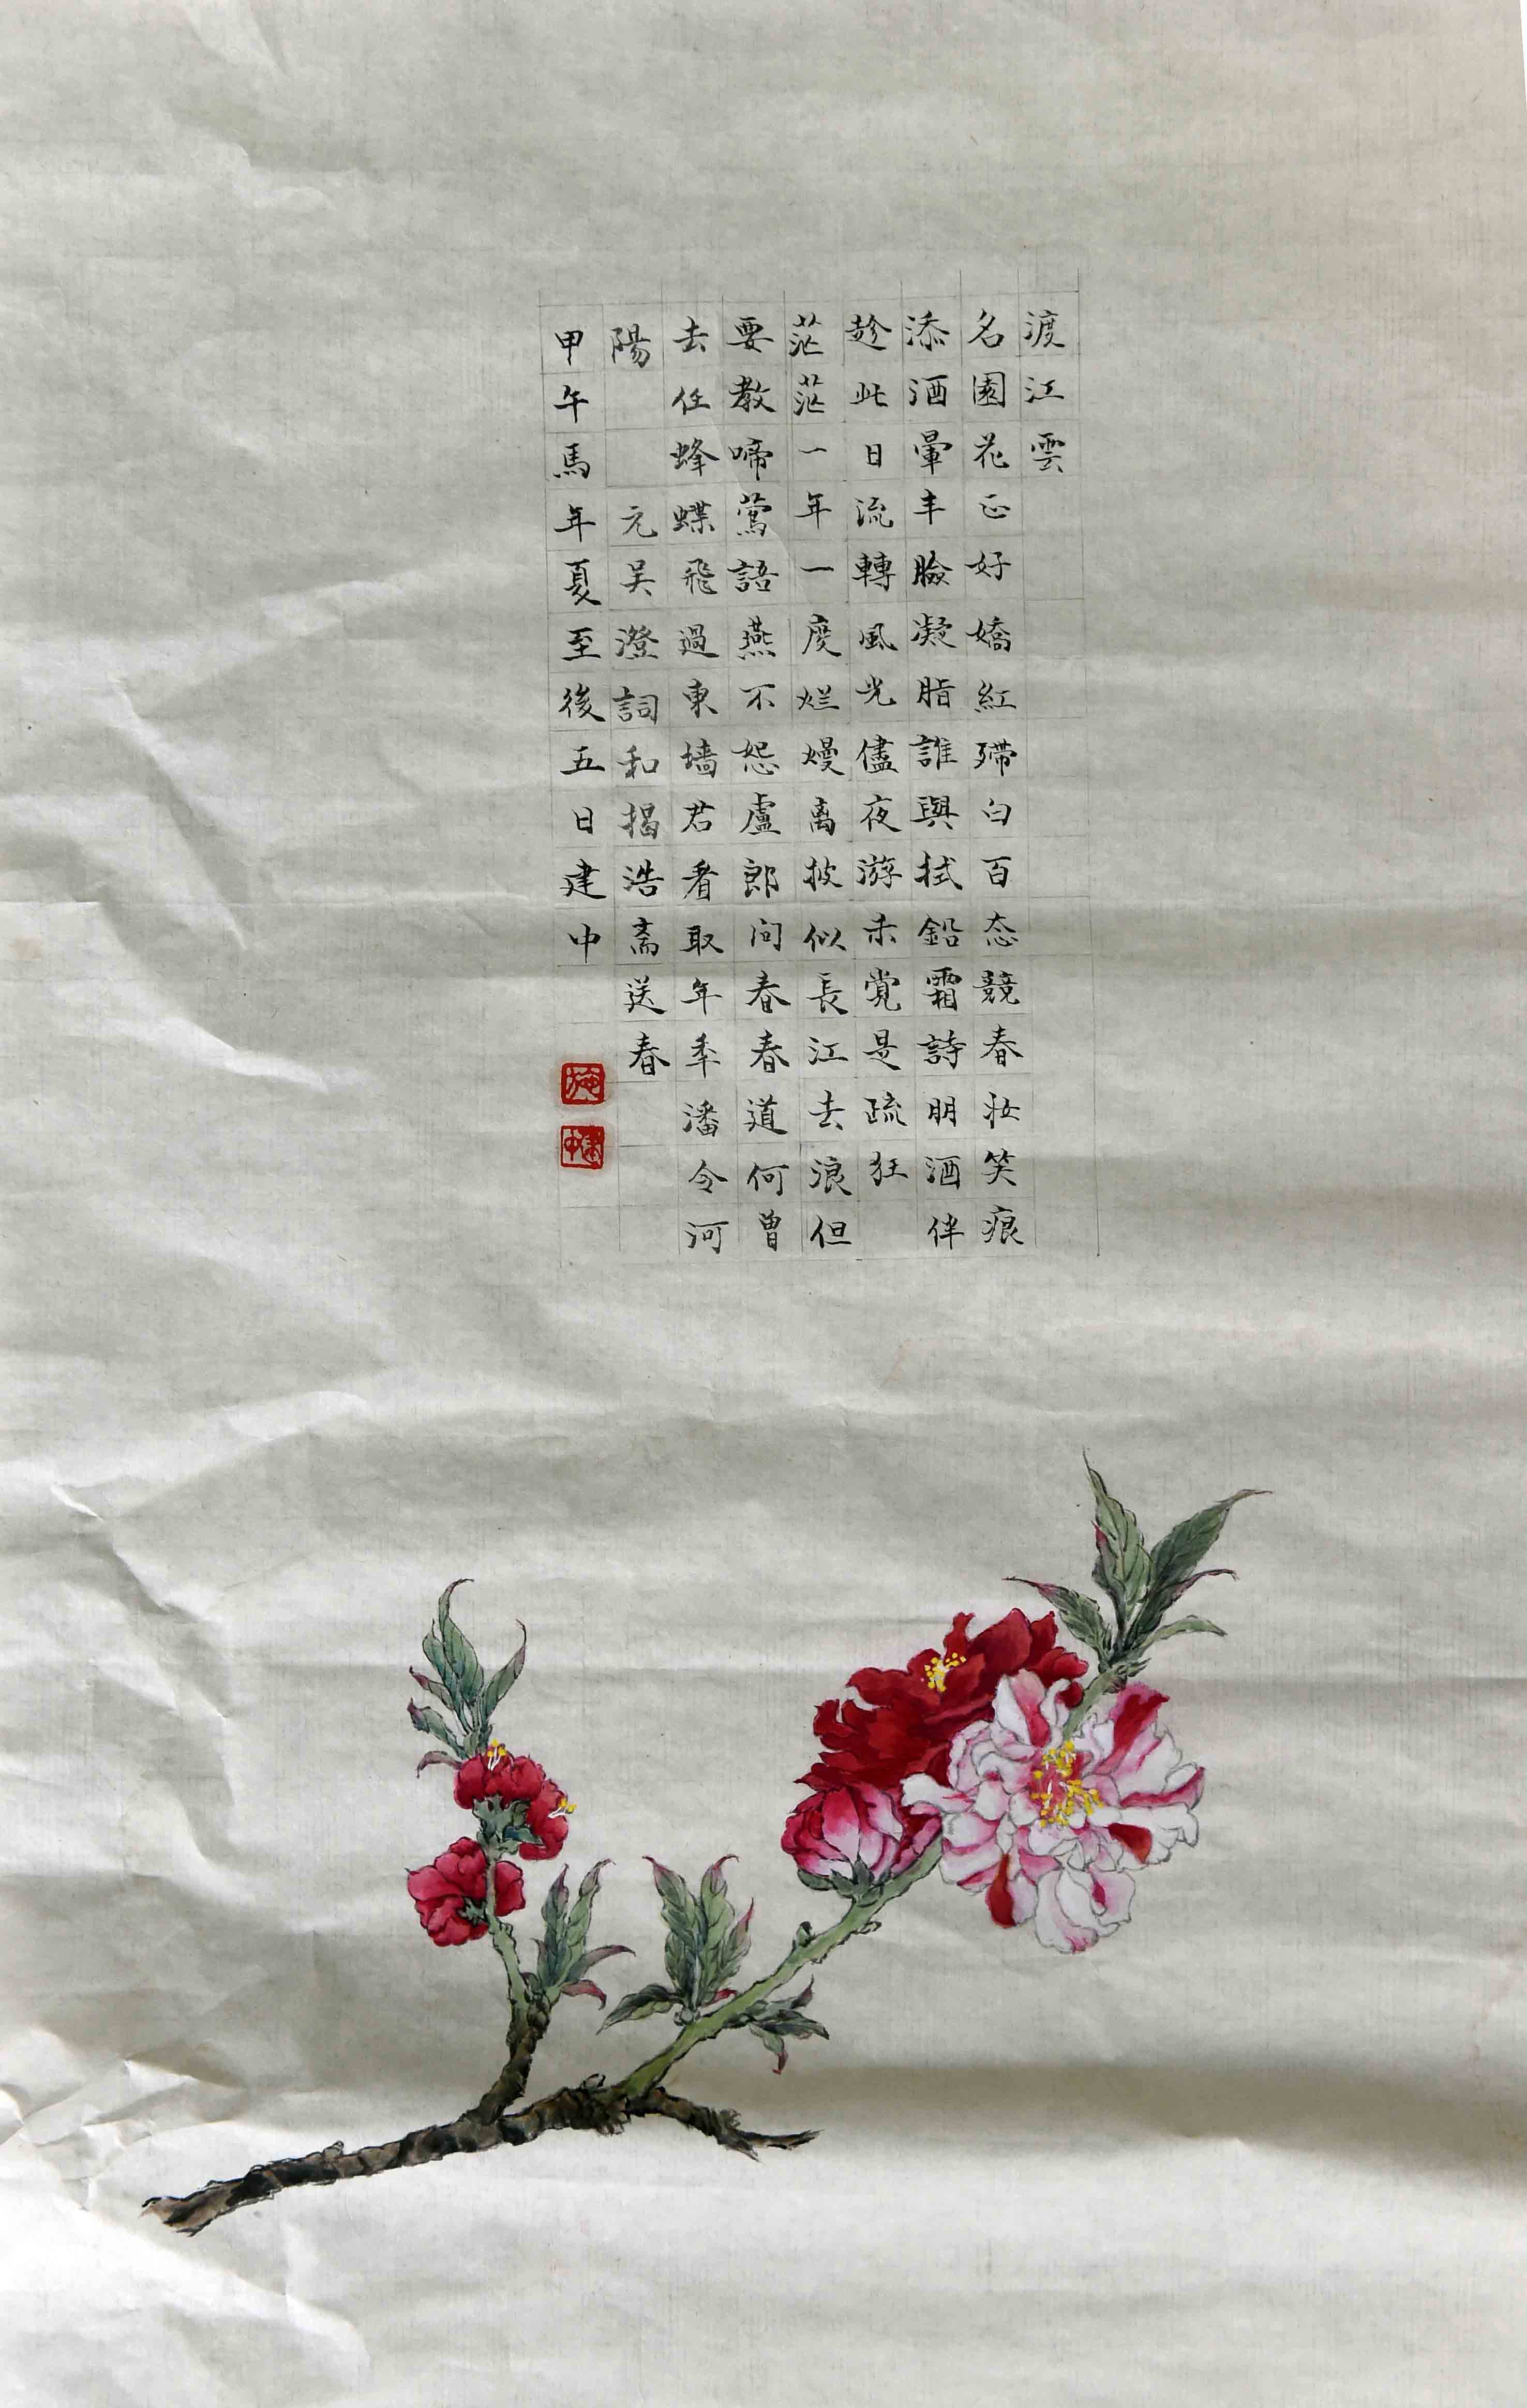 渡江雲
名園花正好嬌紅殢白百态競春妆笑痕
添酒暈丰臉凝脂誰與拭鉛霜詩朋酒伴
趁此日流轉風光儘夜游未覺是疏狂
茫茫一年一度烂熳离披似長江去浪但
要教啼莺語燕不怨盧郎问春春道何曾
去任蜂蝶飛過東墙君看取年年潘令河
陽 元吴澄詞和揭浩斋送春
甲午馬年夏至後五日建中
施
建中